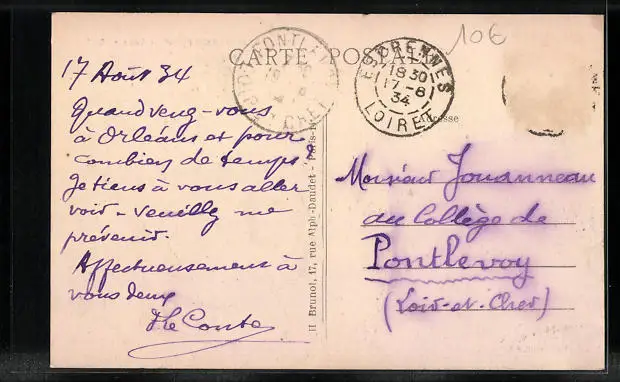 CARTE POSTALE
10€
PONTLEVOY
LOIR-ET-CHER
ESCRENNES
18 30
17 - 8
34
LOIRET
Adresse
17 Août 34
Quand venez-vous
à Orléans et pour
combien de temps?
Je tiens à vous aller
voir - veuillez me
prévenir.
Affectueusement à
vous deux
H Le Conte
H Brunol, 17, rue Alph-Daudet - Paris
Monsieur Jouanneau
au Collège de
Pontlevoy
(Loir-et-Cher)